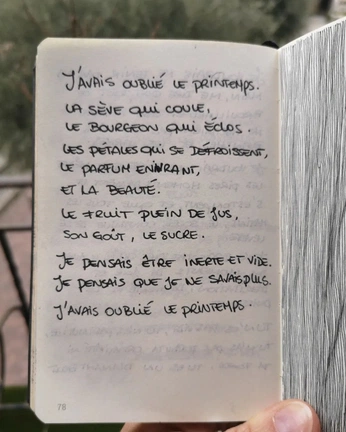 J'AVAIS OUBLIÉ LE PRINTEMPS.
LA SÈVE QUI COULE,
LE BOURGEON QUI ÉCLOS.
LES PÉTALES QUI SE DÉFROISSENT,
LE PARFUM ENIVRANT,
ET LA BEAUTÉ.
LE FRUIT PLEIN DE JUS,
SON GOÛT, LE SUCRE.
JE PENSAIS ÊTRE INERTE ET VIDE.
JE PENSAIS QUE JE NE SAVAIS PLUS.
J'AVAIS OUBLIÉ LE PRINTEMPS.
78